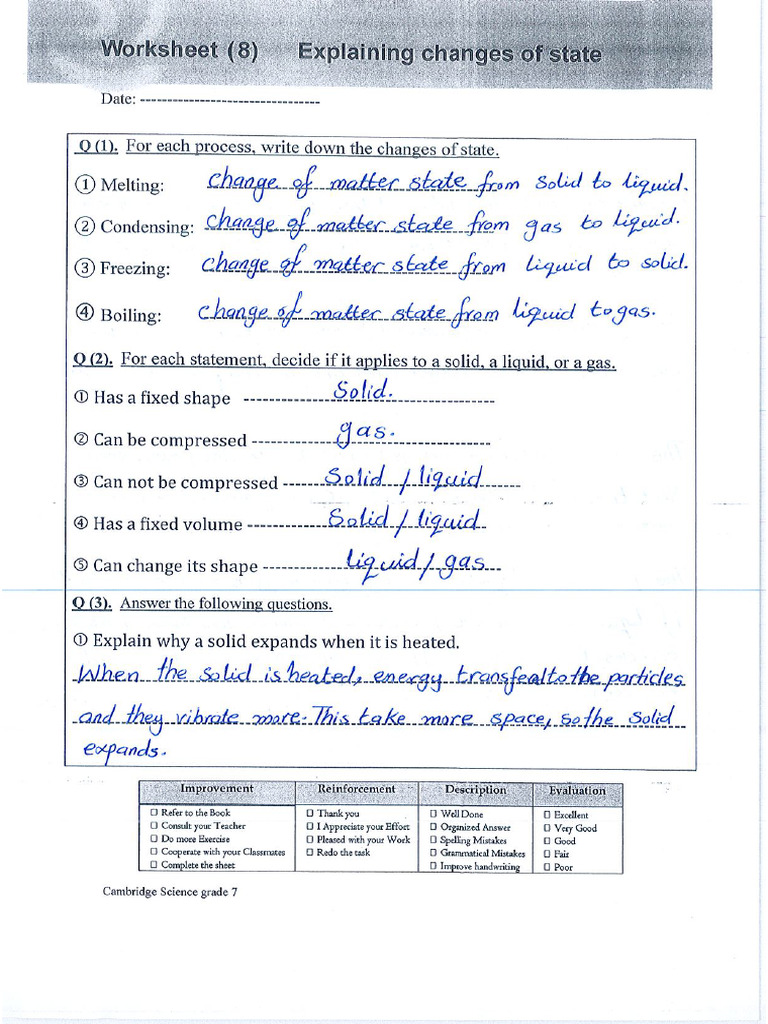 Worksheet (8) Explaining changes of state
Date: ---------------------------------
Q (1). For each process, write down the changes of state.
① Melting: change of matter state from solid to liquid.
② Condensing: change of matter state from gas to liquid.
③ Freezing: change of matter state from liquid to solid.
④ Boiling: change of matter state from liquid to gas.
Q (2). For each statement, decide if it applies to a solid, a liquid, or a gas.
① Has a fixed shape Solid.
② Can be compressed gas.
③ Can not be compressed Solid / liquid
④ Has a fixed volume Solid / liquid
⑤ Can change its shape liquid / gas
Q (3). Answer the following questions.
① Explain why a solid expands when it is heated.
When the solid is heated, energy to the particles
and they vibrate more. This take more space, so the solid
expands.
Improvement Reinforcement Description Evaluation
☐ Refer to the Book ☐ Thank you ☐ Well Done ☐ Excellent
☐ Consult your Teacher ☐ I Appreciate your Effort ☐ Organized Answer ☐ Very Good
☐ Do more Exercise ☐ Pleased with your Work ☐ Spelling Mistakes ☐ Good
☐ Cooperate with your Classmates ☐ Redo the task ☐ Grammatical Mistakes ☐ Fair
☐ Complete the sheet ☐ Improve handwriting ☐ Poor
Cambridge Science grade 7